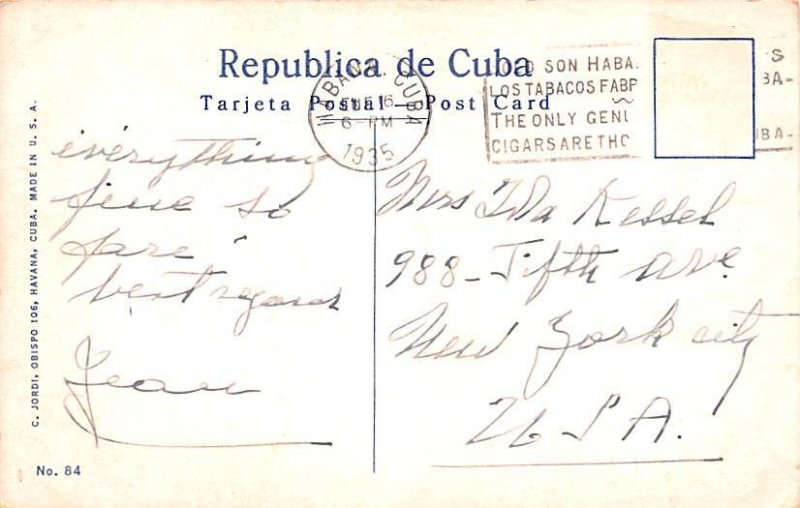 Republica de Cuba
Tarjeta Postal — Post Card
HABANA, CUBA
6
6-PM
1935
NO SON HABA
LOS TABACOS FABR
THE ONLY GENU
CIGARS ARE THO
S
BA-
UBA-
everything
fine so
fare
best regards
Jean
Mrs Ida Kessel
988 - Fifth ave.
New York city
U S A.
C. JORDI, OBISPO 106, HAVANA, CUBA. MADE IN U. S. A.
No. 84